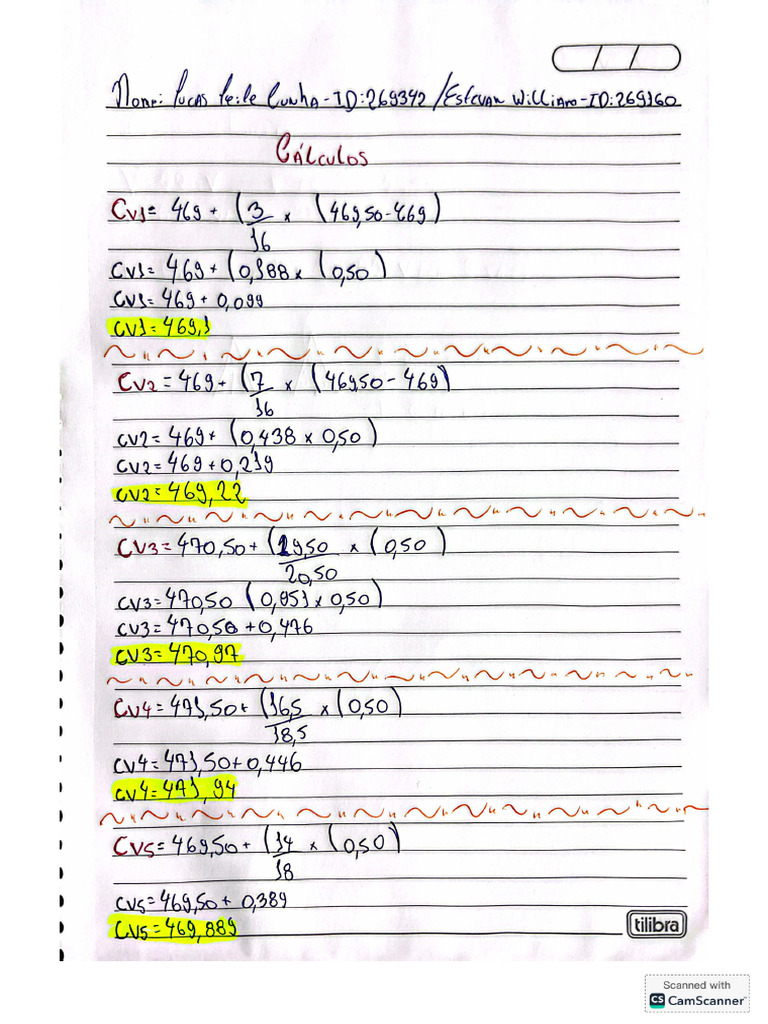 Nome: Lucas Leite Cunha - ID: 269342 / Estevan Williano - ID: 269160
Cálculos
CV1 = 469 + (3/16 x (469,50 - 469)
CV1 = 469 + (0,188 x (0,50)
CV1 = 469 + 0,099
CV1 = 469,1
CV2 = 469 + (7/16 x (46950 - 469)
CV2 = 469 + (0,438 x 0,50)
CV2 = 469 + 0,219
CV2 = 469,22
CV3 = 470,50 + (19,50/20,50 x (0,50)
CV3 = 470,50 (0,951 x 0,50)
CV3 = 470,50 + 0,476
CV3 = 470,97
CV4 = 471,50 + (16,5/18,5 x (0,50)
CV4 = 471,50 + 0,446
CV4 = 471,94
CV5 = 469,50 + (14/18 x (0,50)
CV5 = 469,50 + 0,389
CV5 = 469,889
tilibra
Scanned with
CS CamScanner